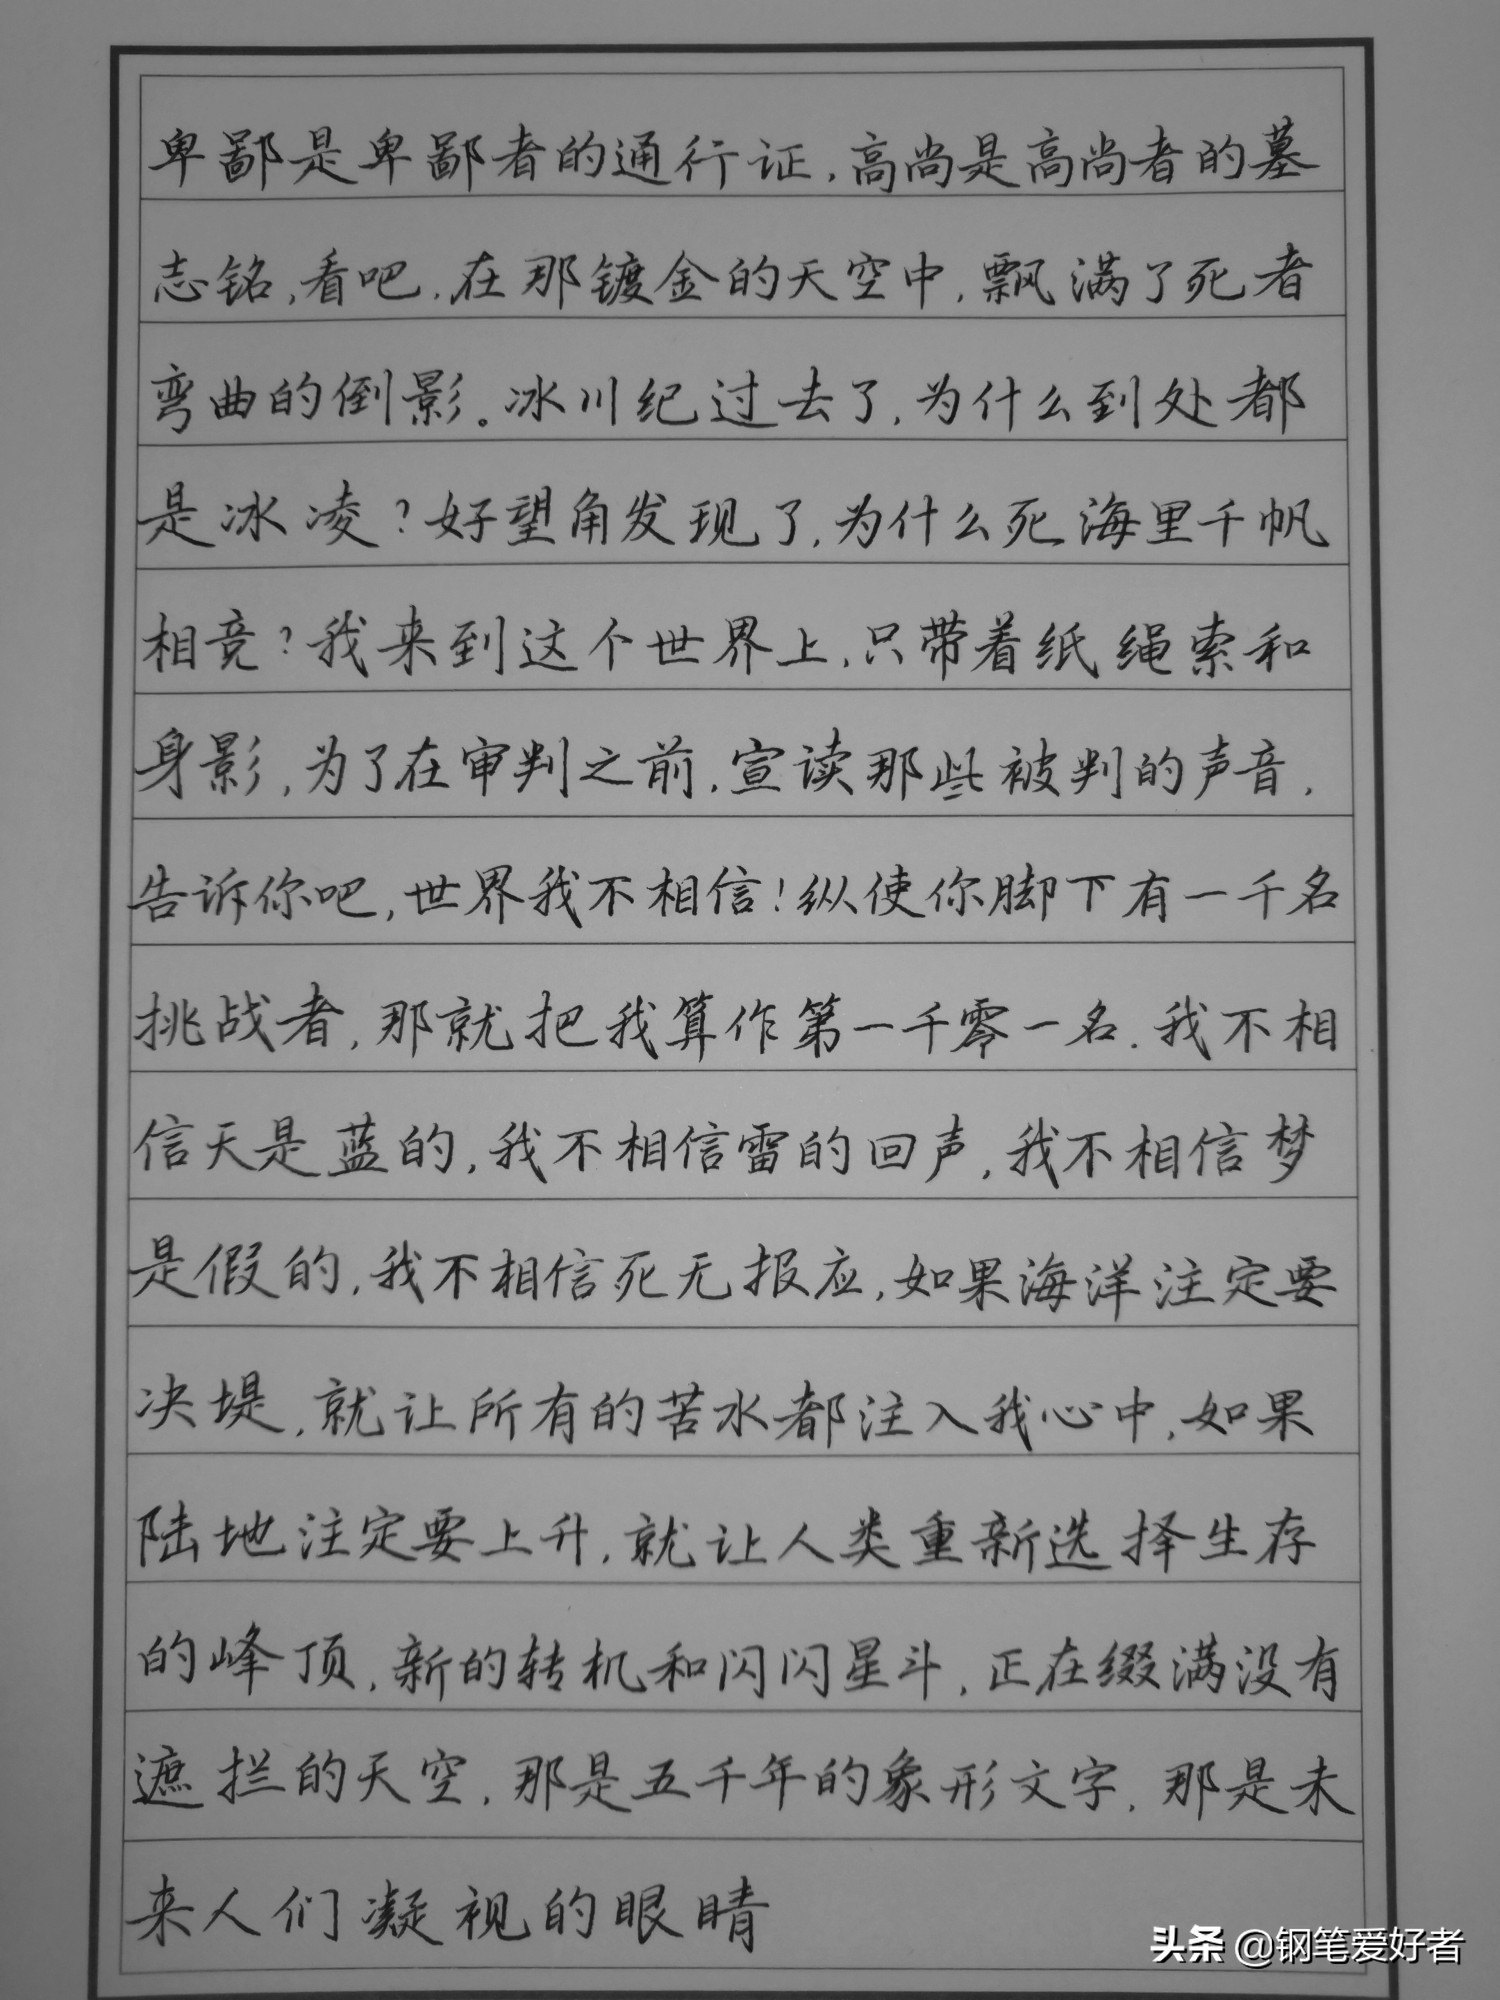 卑鄙是卑鄙者的通行证,高尚是高尚者的墓
志铭,看吧,在那镀金的天空中,飘满了死者
弯曲的倒影。冰川纪过去了,为什么到处都
是冰凌?好望角发现了,为什么死海里千帆
相竞?我来到这个世界上,只带着纸绳索和
身影,为了在审判之前,宣读那些被判的声音,
告诉你吧,世界我不相信!纵使你脚下有一千名
挑战者,那就把我算作第一千零一名.我不相
信天是蓝的,我不相信雷的回声,我不相信梦
是假的,我不相信死无报应,如果海洋注定要
决堤,就让所有的苦水都注入我心中,如果
陆地注定要上升,就让人类重新选择生存
的峰顶,新的转机和闪闪星斗,正在缀满没有
遮拦的天空,那是五千年的象形文字,那是未
来人们凝视的眼睛
头条 @钢笔爱好者